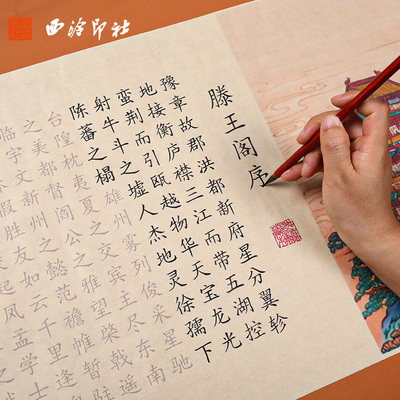 西泠印社
滕王阁序
豫章故郡洪都新府星分翼轸
地接衡庐襟三江而带五湖控
蛮荆而引瓯越物华天宝龙光
射牛斗之墟人杰地灵徐孺下
陈蕃之榻雄州雾列俊采星驰
台隍枕夷夏之交宾主尽东南
之美都督阎公之雅望棨戟遥
临宇文新州之懿范襜帷暂驻
假胜友如云千里逢
起凤孟学士